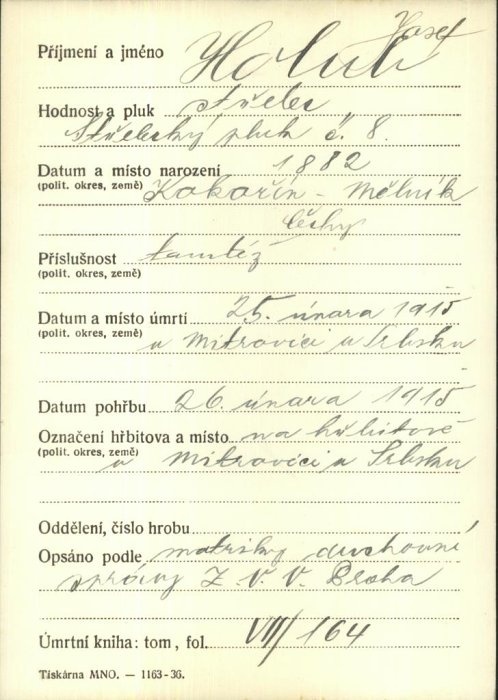 Příjmení a jméno Holub Josef
Hodnost a pluk střelec
Střelecký pluk č. 8.
Datum a místo narození 1882
(polit. okres, země) Kokořín - Mělník
Čechy
Příslušnost tamtéž
(polit. okres, země)
Datum a místo úmrtí 25. února 1915
(polit. okres, země) v Mitrovici v Srbsku
Datum pohřbu 26. února 1915
Označení hřbitova a místo na hřbitově
(polit. okres, země) v Mitrovici v Srbsku
Oddělení, číslo hrobu
Opsáno podle matriky duchovní
správy Z. V. V. Praha
Úmrtní kniha: tom, fol. VII/164
Tiskárna MNO. — 1163-36.